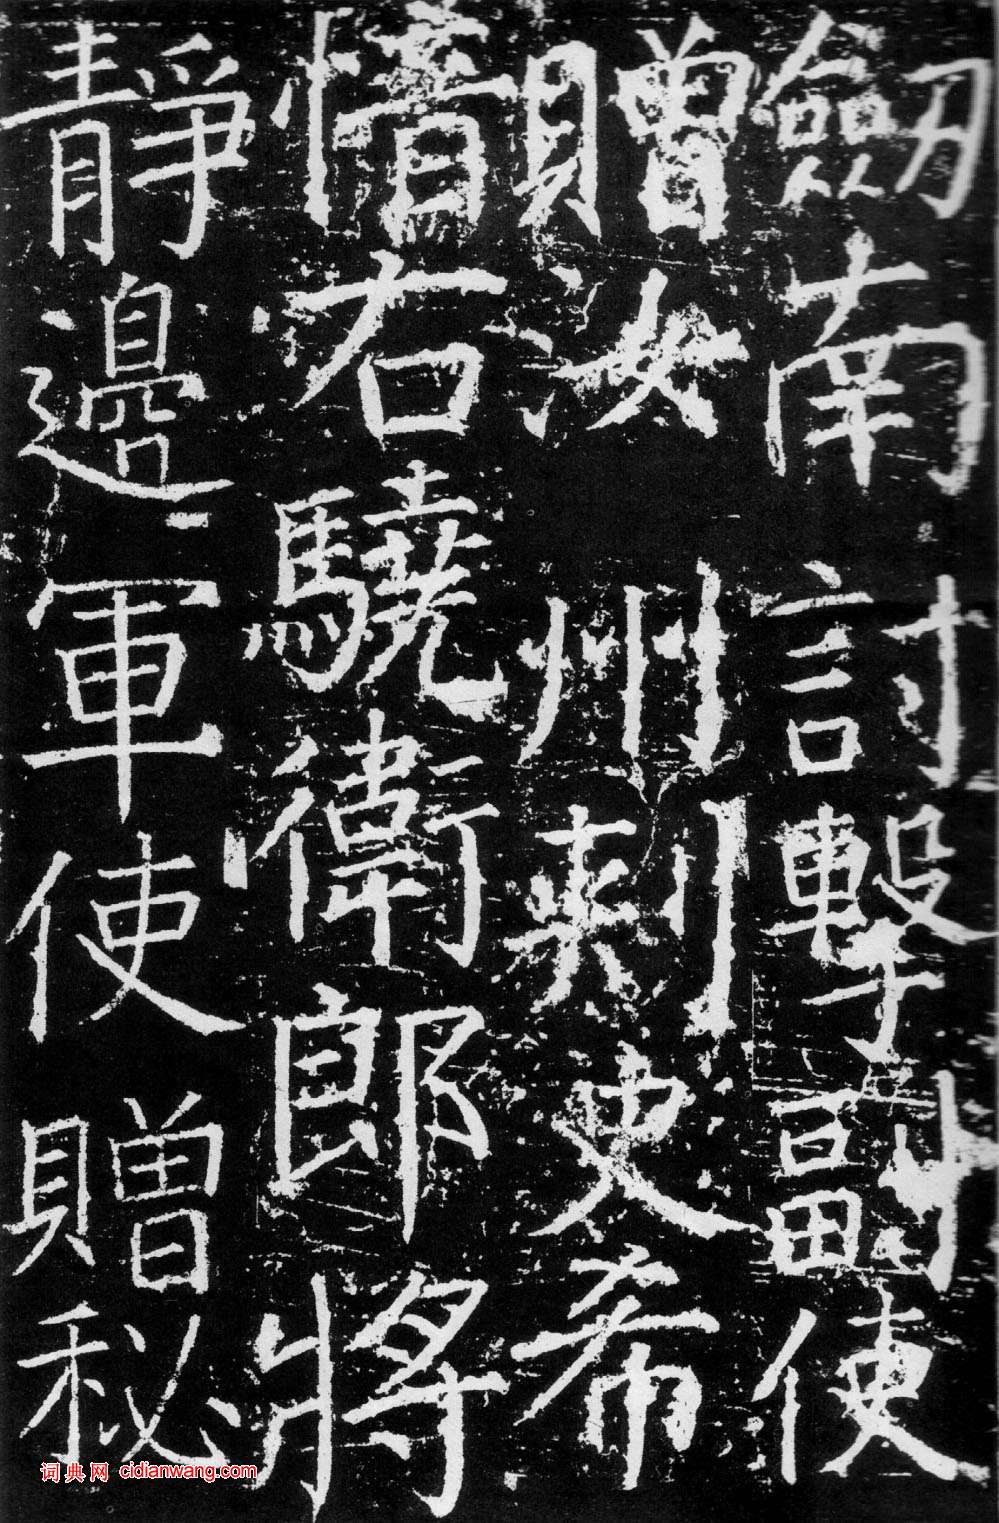 劒南討擊副使
贈汝州刺史希
愔右驍衛郎將
靜邊軍使贈秘
词典网 cidianwang.com